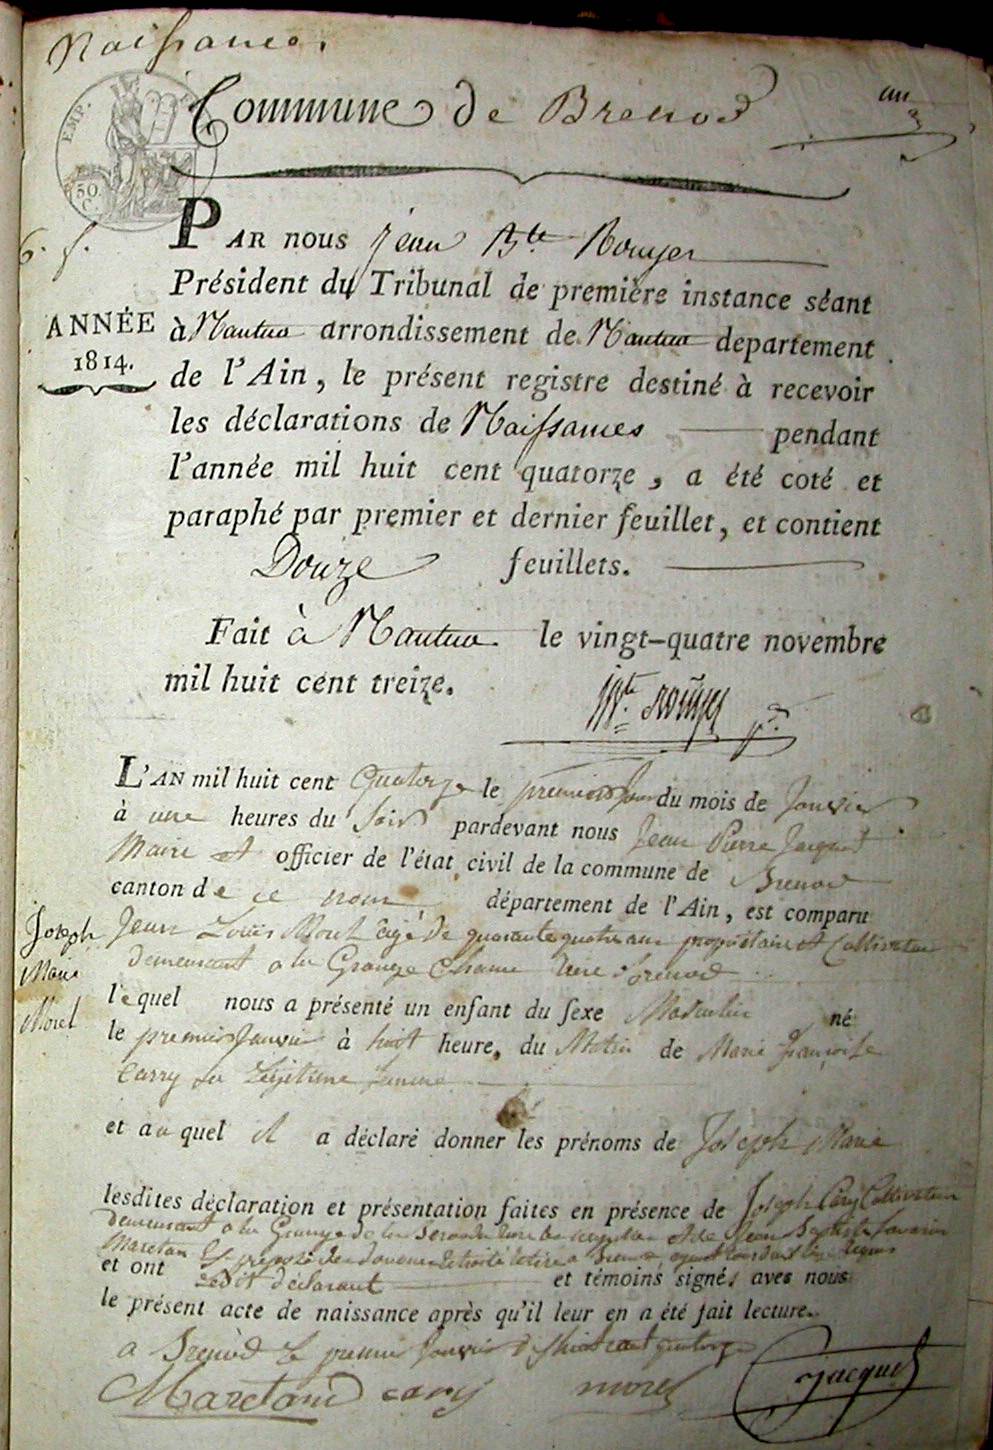 Naissances.
Commune de Brenod
un
EMP.
50
C.
PAR nous Jean Bte Rouyer
Président du Tribunal de première instance séant
ANNÉE
1814.
à Nantua arrondissement de Nantua departement
de l'Ain, le présent registre destiné à recevoir
les déclarations de Naissances pendant
l'année mil huit cent quatorze, a été coté et
paraphé par premier et dernier feuillet, et contient
Douze feuillets.
Fait à Nantua le vingt-quatre novembre
mil huit cent treize.
Bte Rouyer
L'AN mil huit cent Quatorze le premier jour du mois de Janvier
à une heures du soir pardevant nous Jean Pierre Jacquet
Maire et officier de l'état civil de la commune de Brenod
canton de ce nom département de l'Ain, est comparu
Joseph
Marie
Morel
Jean Louis Morel âgé de quarante quatre ans propriétaire et Cultivateur
demeurant a la Grange Brenod
lequel nous a présenté un enfant du sexe Masculin né
le premier Janvier à huit heure, du Matin de Marie Françoise
Carry sa Légitime femme
et auquel il a déclaré donner les prénoms de Joseph Marie
lesdites déclaration et présentation faites en présence de Joseph Cary Cultivateur
demeurant a la Grange de et de Jean Baptiste
Maretan préposé des douanes retraité a Brenod
et ont ledit déclarant et témoins signés avec nous
le présent acte de naissance après qu'il leur en a été fait lecture.
a Brenod le premier Janvier dix huit cent quatorze
Maretand cary morel Jacquet